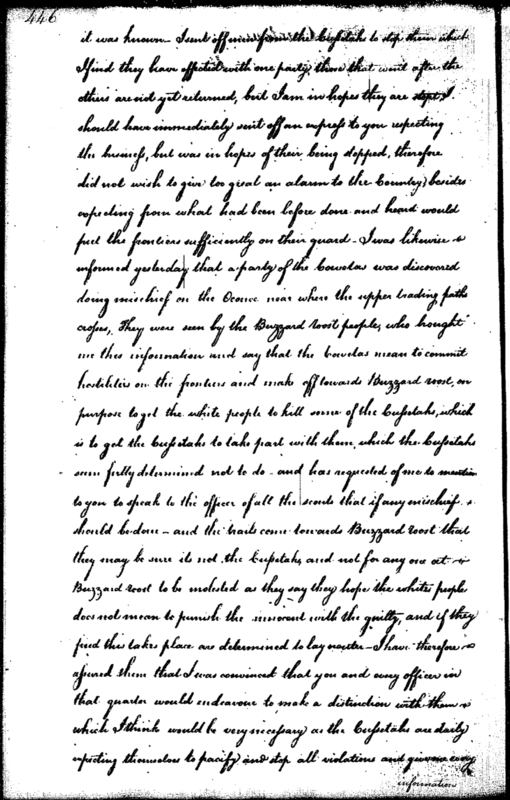 446
it was known - I sent off men from the Cussetahs to stop them which
I find they have affected with one party, those that went after the
others are not yet returned, but I am in hopes they are stopt, I
should have immediately sent off an express to you respecting
the business, but was in hopes of their being stopped, therefore
did not wish to give too great an alarm to the Country, besides
expecting from what had been before done and heard would
put the frontiers sufficiently on their guard - I was likewise
informed yesterday that a party of the Cowetas was discovered
doing mischief on the Oconee near where the upper trading path
crosses, They were seen by the Buzzard roost people, who brought
me this information and say that the Cowetas mean to commit
hostilities on the frontiers and make off towards Buzzard roost, on
purpose to get the white people to kill some of the Cussetahs, which
is to get the Cussetahs to take part with them, which the Cussetahs
seem fully determined not to do - and has requested of me to mention
to you to speak to the officer of all the scouts that if any mischief
should be done - and the trails come towards Buzzard roost that
they may be sure its not the Cussetahs, and not for any one at
Buzzard roost to be molested as they say they hope the white people
does not mean to punish the innocent with the guilty, and if they
find this takes place are determined to lay neuter - I have therefore
assured them that I was convinced that you and every officer in
that quarter would endeavour to make a distinction with them
which I think would be very necessary as the Cussetahs are daily
exerting themselves to pacify and stop all violations and giving every
information